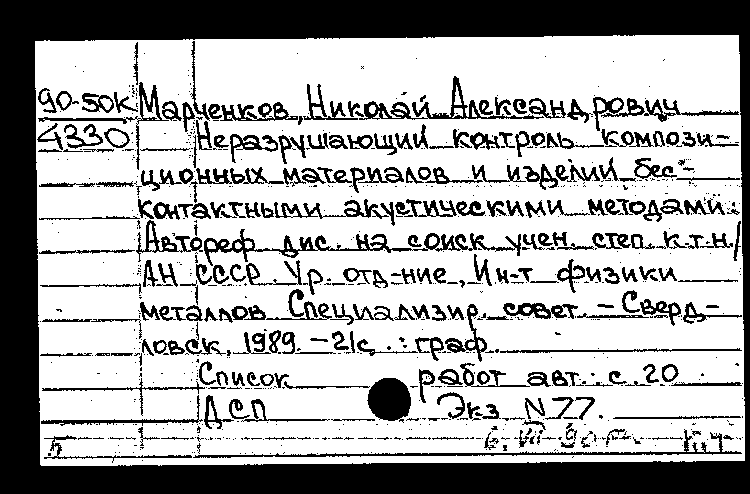 90-50к Марченков, Николай Александрович
4330 Неразрушающий контроль компози-
ционных материалов и изделий бес-
контактными акустическими методами:
Автореф. дис. на соиск. учен. степ. к.т.н./
АН СССР. Ур. отд-ние, Ин-т физики
металлов. Специализир. совет. – Сверд-
ловск, 1989. – 21с. : граф.
Список работ авт.: с. 20
ДСП Экз N 77.
Б 6. VII 90г. К.Т